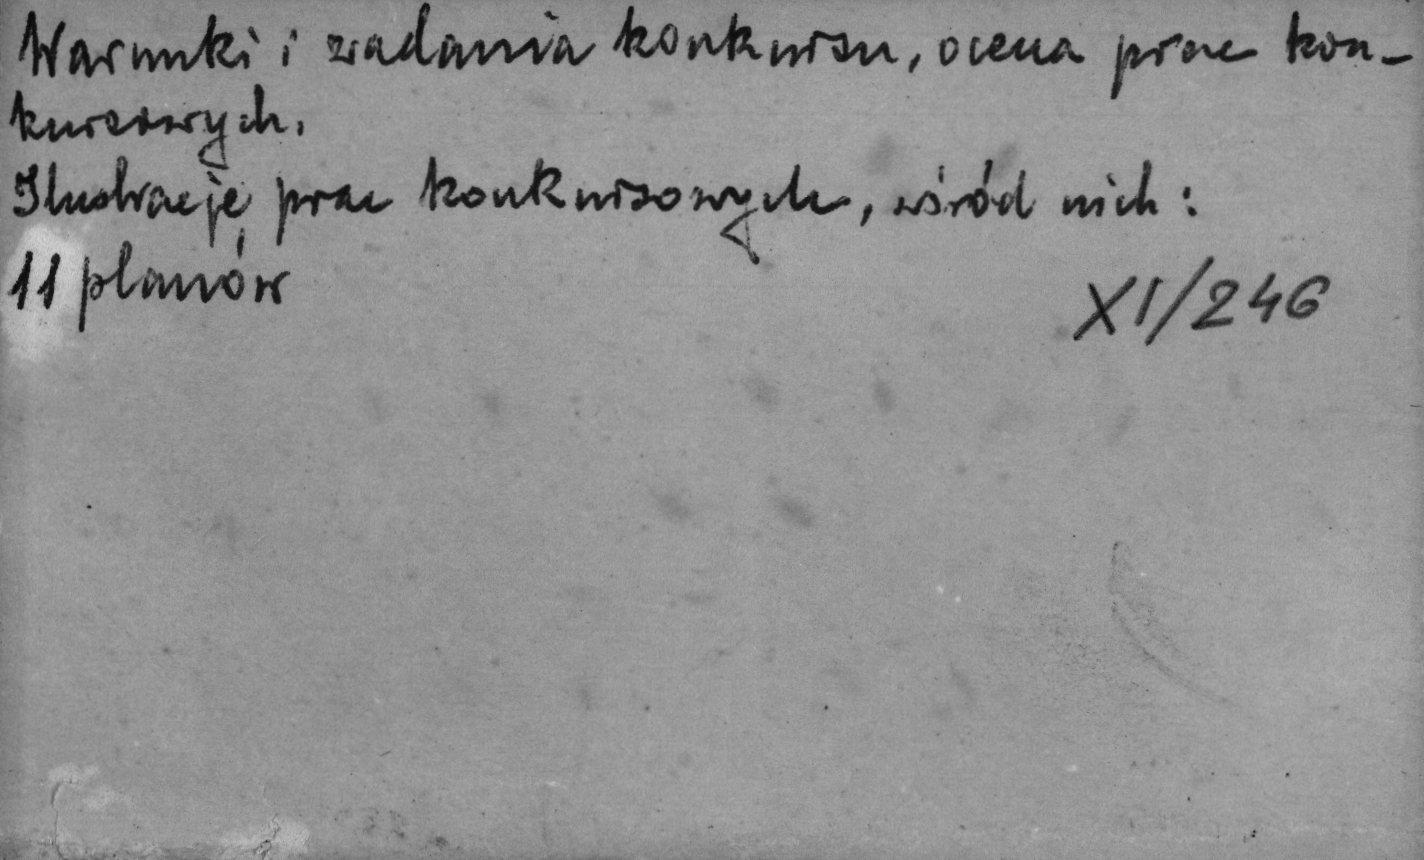 Warunki i zadania konkursu, ocena prac kon-
kursowych.
Ilustracje prac konkursowych, wśród nich:
11 planów
XI/246